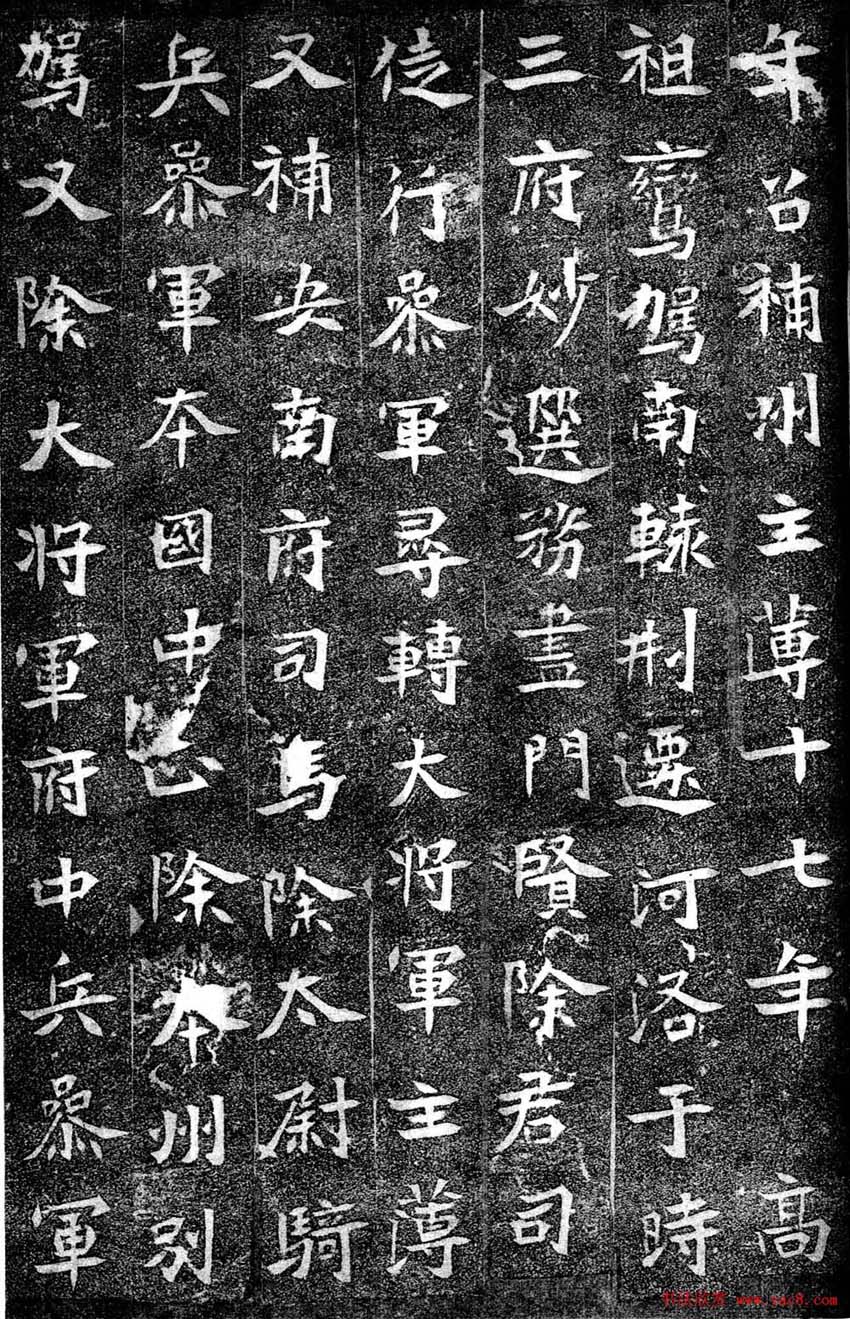 年召補州主薄十七年高
祖鸞駕南轅剏遷河洛于時
三府妙選務盡門賢除君司
徒行叅軍尋轉大將軍主薄
又補安南府司馬除太尉騎
兵叅軍本國中正除本州別
駕又除大將軍府中兵叅軍
www.yac8.com